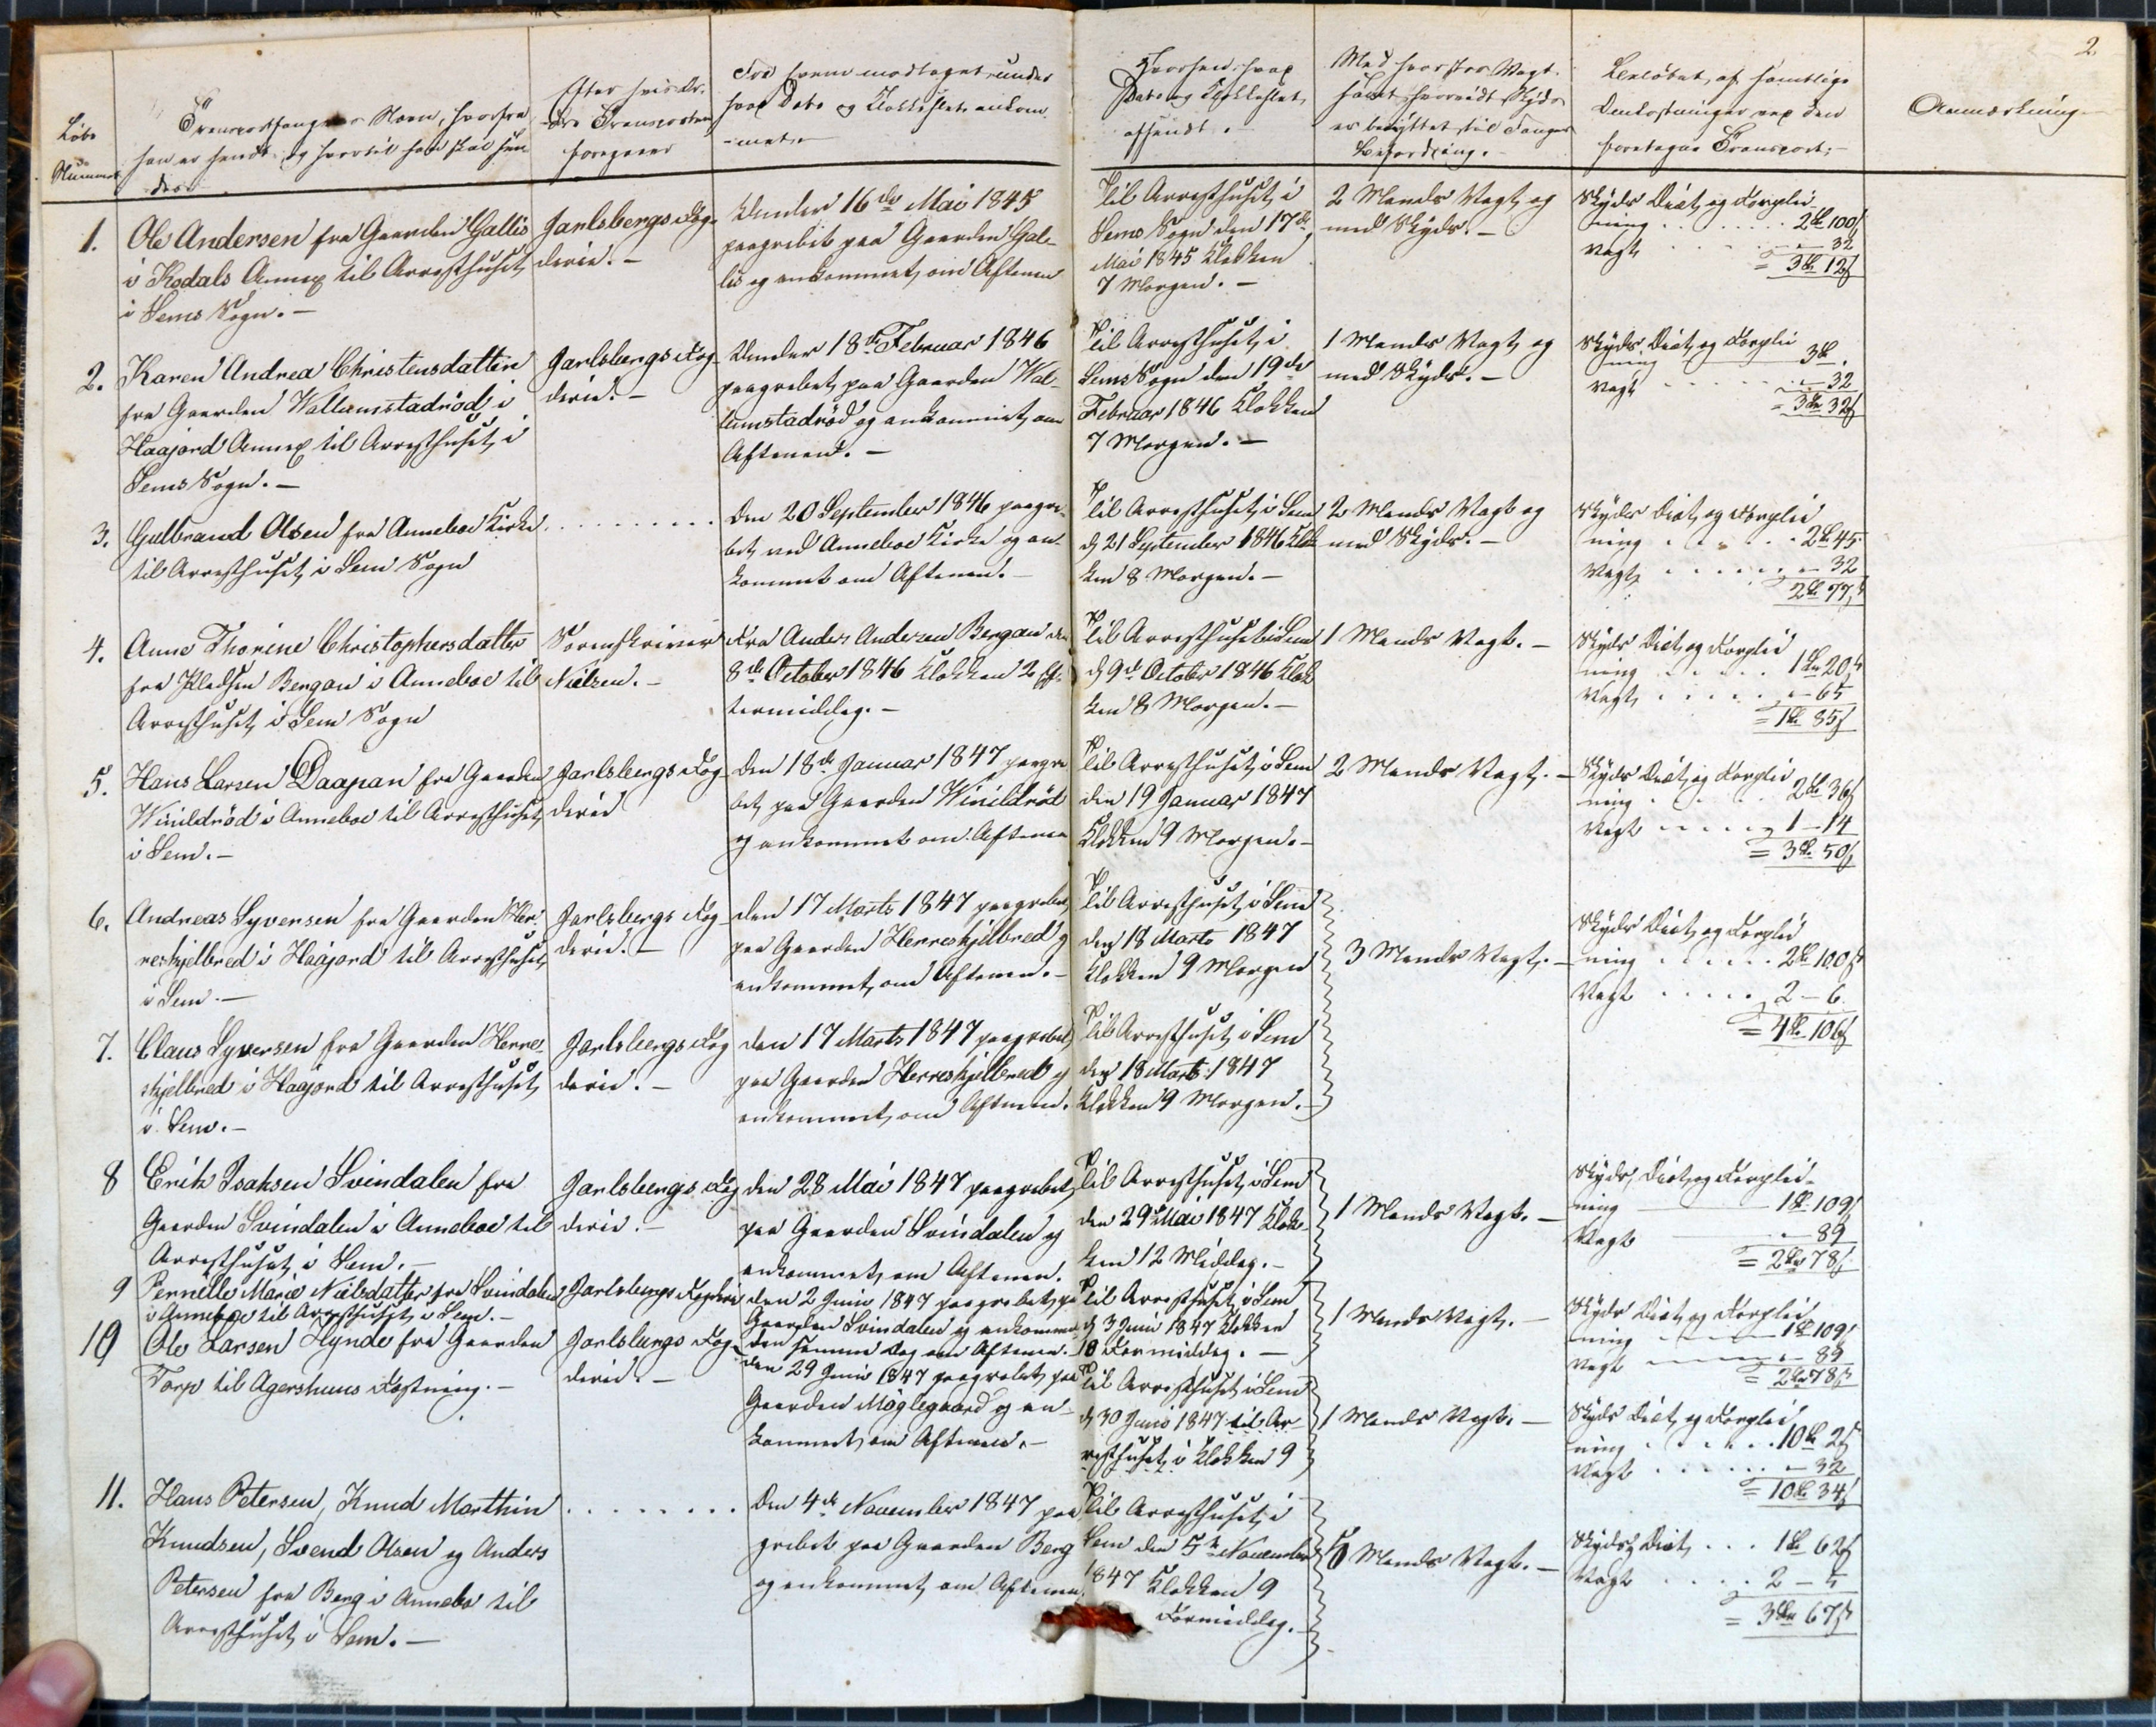 2
Løbe
Nummer
Transportfangens Navn, hvorfra
han er sendt og hvortil han skal sen
des
Efter hvis Or-
dre Transporten
foregaaer
Fra hvem modtaget under
hvad Dato og Klokkeslet ankom
met.
Hvorhen, hvad
Dato og Klokkeslet
afsendt.
Med hvor stor Vagt,
samt hvorvidt Skyds
er benyttet til Fangens
Befordring.
Beløbet af samtlige
Omkostninger ved den
foretagne Transport.
Anmærkning
1.
Ole Andersen fra Gaarden Gallis
i Kodals Annex til Arresthuset
i Sems Sogn. —
Jarlsbergs Fog-
derie. —
Under 16de Mai 1845
paagrebet paa Gaarden Gal-
lis og ankommet om Aftenen
Til Arresthuset i
Sems Sogn den 17de
Mai 1845 Klokken
7 Morgen. —
2 Mands Vagt og
med Skyds. —
Skyds Diæt og Forplei-
ning . . . . . 2 100
Vagt . . . . - 32
= 3 12
2.
Karen Andrea Christensdatter
fra Gaarden Wallumstadrød i
Haajord Annex til Arresthuset i
Sems Sogn. —
Jarlsbergs Fog-
derie. —
Under 18de Februar 1846
paagrebet paa Gaarden Wal-
lumstadrød og ankommet om
Aftenen. —
Til Arresthuset i
Sems Sogn den 19de
Februar 1846 Klokken
7 Morgen. —
1 Mands Vagt og
med Skyds. —
Skyds Diæt og Forplei
ning 3 .
Vagt . . . . - 32
= 3 32
3.
Gulbrand Olsen fra Anneboe Kirke
til Arresthuset i Sem Sogn
. . . . . . . . .
Den 20 September 1846 paagre-
bet ved Anneboe Kirke og an-
kommet om Aftenen. —
Til Arresthuset i Sem
d 21 September 1846 Klok
ken 8 Morgen. —
2 Mands Vagt og
med Skyds. —
Skyds Diæt og Forplei
ning . . . . . 2 45
Vagt . . . . - 32
2 77
4.
Anne Thorine Christophersdatter
fra Pladsen Bergan i Anneboe til
Arresthuset i Sem Sogn
Sorenskriver
Nielsen. —
Fra Anders Andersen Bergan den
8de October 1846 Klokken 2 Ef-
termiddag. —
Til Arresthuset i Sem
d 9de October 1846 Klok
ken 8 Morgen. —
1 Mands Vagt. —
Skyds Diæt og Forplei
ning . . . . 1 20
Vagt . . . . - 65
= 1 85
5.
Hans Larsen Daapan fra Gaarden
Winildrød i Anneboe til Arresthuset
i Sem. —
Jarlsbergs Fog-
derie
Den 18de Januar 1847 paagre
bet paa Gaarden Winildrød
og ankommet om Aftenen
Til Arresthuset i Sem
den 19 Januar 1847
Klokken 9 Morgen. —
2 Mands Vagt. —
Skyds Diæt og Forplei
ning . . . . 2 36
Vagt . . . . 1 - 14
= 3 50
6.
Andreas Syversen fra Gaarden Her-
reskjelbred i Haajord til Arresthuset
i Sem. —
Jarlsbergs Fog-
derie. —
Den 17 Marts 1847 paagrebet
paa Gaarden Herreskjelbred og
ankommet om Aftenen. —
Til Arresthuset i Sem
den 18 Marts 1847
Klokken 9 Morgen
3 Mands Vagt. —
Skyds Diæt og Forplei
ning . . . . . 2 100
Vagt . . . . 2 - 6
= 4 106
7.
Claus Syversen fra Gaarden Herre-
skjelbred i Haajord til Arresthuset
i Sem. —
Jarlsbergs Fog
derie. —
Den 17 Marts 1847 paagrebet
paa Gaarden Herreskjelbred og
ankommet om Aftenen.
Til Arresthuset i Sem
den 18 Marts 1847
Klokken 9 Morgen. —
8
Erik Isaksen Svindalen fra
Gaarden Svindalen i Anneboe til
Arresthuset i Sem. —
Jarlsbergs Fog
derie. —
Den 28 Mai 1847 paagrebet
paa Gaarden Svindalen og
ankommet om Aftenen.
Til Arresthuset i Sem
den 29 Mai 1847 Klok-
ken 12 Middag. —
1 Mands Vagt. —
Skyds, Diæt og Forplei-
ning 1 109
Vagt - 89
= 2 78
9
Pernille Marie Nielsdatter fra Svindalen
i Anneboe til Arresthuset i Sem. —
Jarlsbergs Fogderie
Den 2 Juni 1847 paagrebet paa
Gaarden Svindalen og ankommen
den samme Dag om Aftenen.
Til Arresthuset i Sem
d 3 Juni 1847 Klokken
10 Formiddag. —
1 Mands Vagt. —
Skyds Diæt og Forplei
ning 1 109
Vagt - 89
= 2 78
10
Ole Larsen Hynde fra Gaarden
Torp til Agershuus Fæstning. —
Jarlsbergs Fog-
derie. —
Den 29 Juni 1847 paagrebet paa
Gaarden Møglegaard og an-
kommet om Aftenen. —
Til Arresthuset i Sem
d 30 Juni 1847 til Ar
resthuset i Klokken 9
1 Mands Vagt. —
Skyds Diæt og Forplei
ning . . . . . 10 2
Vagt . . . . - 32
= 10 34
11.
Hans Petersen, Knud Marthin
Knudsen, Svend Olsen og Anders
Petersen fra Berg i Annebo til
Arresthuset i Sem. —
. . . . . . . .
Den 4de November 1847 paa
grebet paa Gaarden Berg
og ankommet om Aftenen
Til Arresthuset i
Sem den 5te November
1847 Klokken 9
Formiddag. —
6 Mands Vagt. —
Skyds, Diæt . . . 1 62
Vagt . . . . 2 - 5
= 3 67